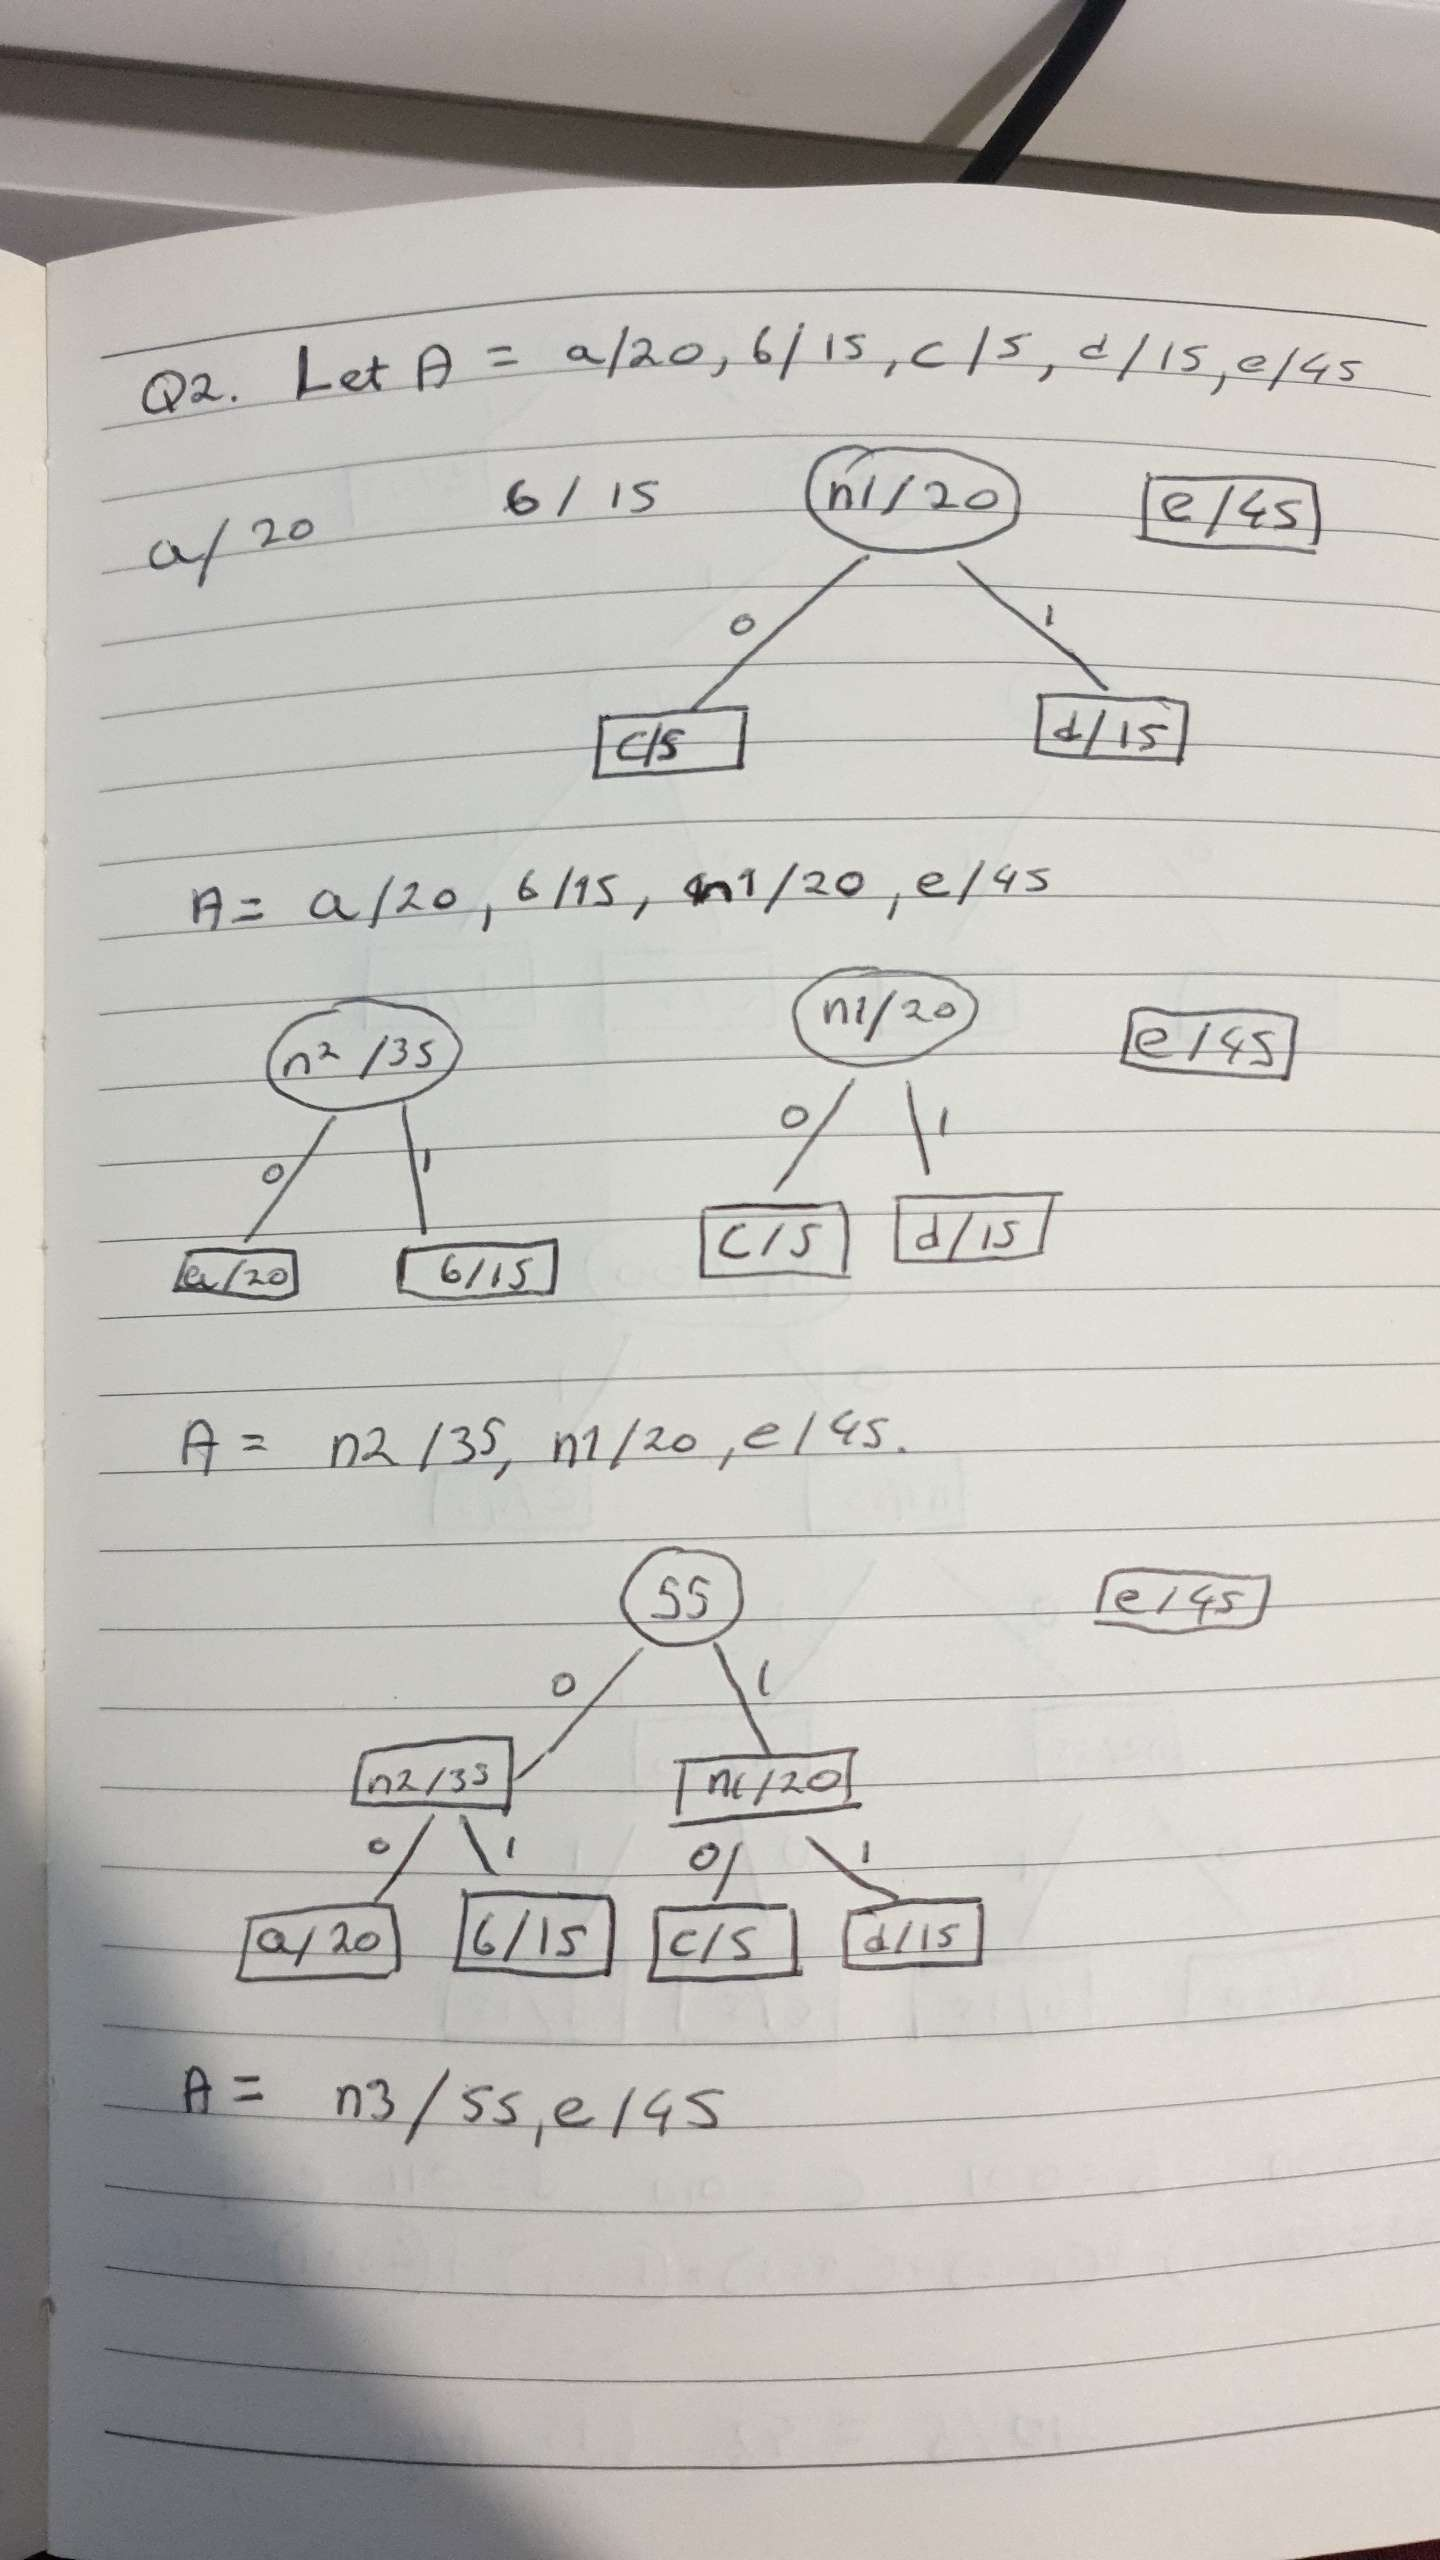 Q2. Let A = a/20, b/15, c/5, d/15, e/45
a/20 b/15 n1/20 e/45
0 1
c/5 d/15
A = a/20, b/15, n1/20, e/45
n2/35 n1/20 e/45
0 1 0 1
a/20 b/15 c/5 d/15
A = n2/35, n1/20, e/45.
55 e/45
0 1
n2/35 n1/20
0 1 0 1
a/20 b/15 c/5 d/15
A = n3/55, e/45